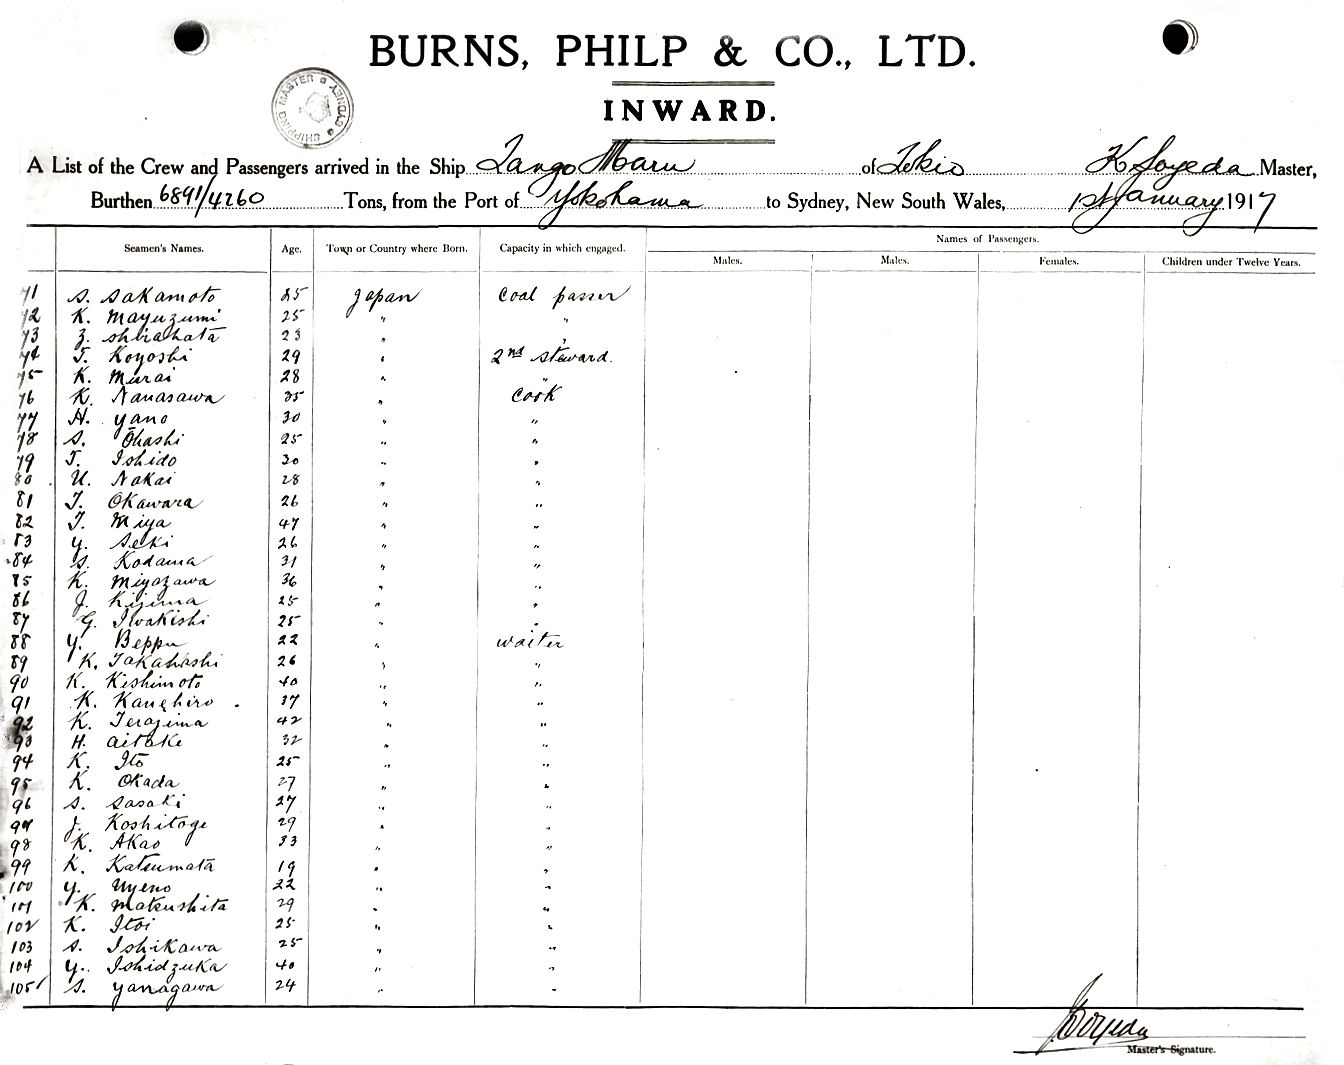 BURNS, PHILP & CO., LTD.
SHIPPING MASTER SYDNEY
INWARD.
A List of the Crew and Passengers arrived in the Ship Tango Maru of Tokio K Soyeda Master,
Burthen 6891/4260 Tons, from the Port of Yokohama to Sydney, New South Wales, 1st January 1917
Names of Passengers.
Seamen's Names. Age. Town or Country where Born. Capacity in which engaged.
Males. Males. Females. Children under Twelve Years.
71 S. Sakamoto 25 Japan Coal passer
72 K. Mayuzumi 25 " "
73 Z. Shirahata 23 " "
74 T. Koyoshi 29 " 2nd steward.
75 K. Murai 28 " "
76 K. Nanasawa 35 " Cook
77 H. Yano 30 " "
78 S. Ōhashi 25 " "
79 T. Ishido 30 " "
80 U. Nakai 28 " "
81 T. Okawara 26 " "
82 T. Miya 47 " "
83 Y. Seki 26 " "
84 S. Kodama 31 " "
85 K. Miyazawa 36 " "
86 J. Kijima 25 " "
87 G. Iwakishi 25 " "
88 Y. Beppu 22 " waiter
89 K. Takahashi 26 " "
90 K. Kishimoto 40 " "
91 K. Kanehiro 37 " "
92 K. Terajima 42 " "
93 H. Aitake 32 " "
94 K. Ito 25 " "
95 K. Okada 27 " "
96 S. Sasaki 27 " "
97 J. Koshitoge 29 " "
98 K. Akao 33 " "
99 K. Katsumata 19 " "
100 Y. Uyeno 22 " "
101 K. Matsushita 29 " "
102 K. Itoi 25 " "
103 S. Ishikawa 25 " "
104 Y. Ishidzuka 40 " "
105 S. Yanagawa 24 " "
K Soyeda
Master's Signature.